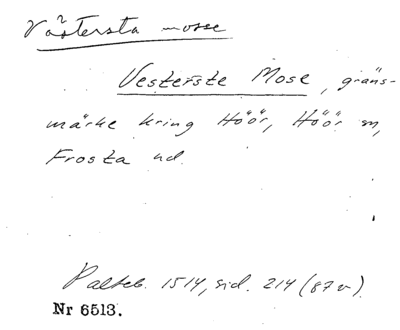 Västersta mosse
Vesterste Mose, gräns-
märke kring Höör, Höör sn,
Frosta hd.
Palteb. 1514, sid. 214 (87 v).
Nr 6513.